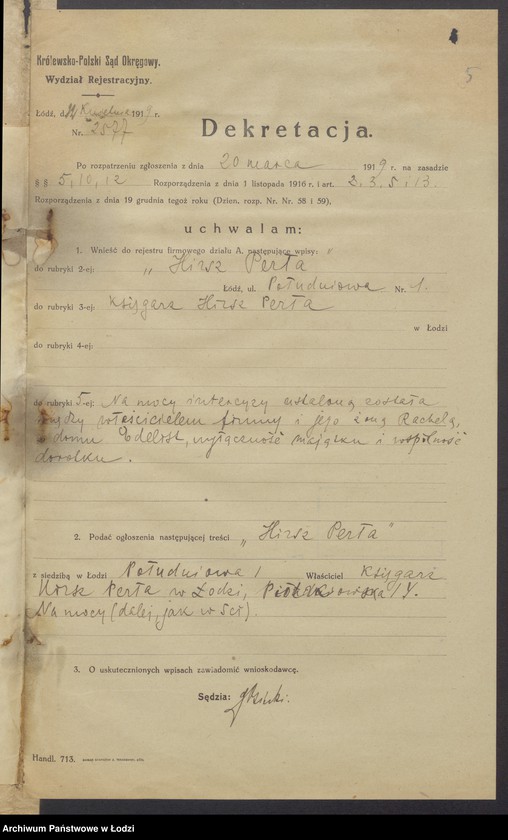 5
Królewsko-Polski Sąd Okręgowy.
Wydział Rejestracyjny.
Łódź, d. 1919 r.
Nr. 2577
Dekretacja.
Po rozpatrzeniu zgłoszenia z dnia 20 marca 1919 r. na zasadzie
§ § 5, 10, 12 Rozporządzenia z dnia 1 listopada 1916 r. i art. 2. 3. 5 i 13.
Rozporządzenia z dnia 19 grudnia tegoż roku (Dzien. rozp. Nr. Nr. 58 i 59),
uchwalam:
1. Wnieść do rejestru firmowego działu A. następujące wpisy:
do rubryki 2-ej: „Hirsz Perła"
Łódź, ul. Południowa Nr. 1.
do rubryki 3-ej: Księgarz Hirsz Perła
w Łodzi
do rubryki 4-ej:
do rubryki 5-ej: Na mocy intercyzy ustaloną została
między właścicielem firmy i jego żoną Rachelą,
z domu Edelist, wyłączność majątku i wspólność
dorobku.
2. Podać ogłoszenia następującej treści „Hirsz Perła"
z siedzibą w Łodzi Południowa 1 Właściciel Księgarz
Hirsz Perła w Łodzi,
Na mocy (dalej jak w
3. O uskutecznionych wpisach zawiadomić wnioskodawcę.
Sędzia:
Handl. 713.
Archiwum Państwowe w Łodzi